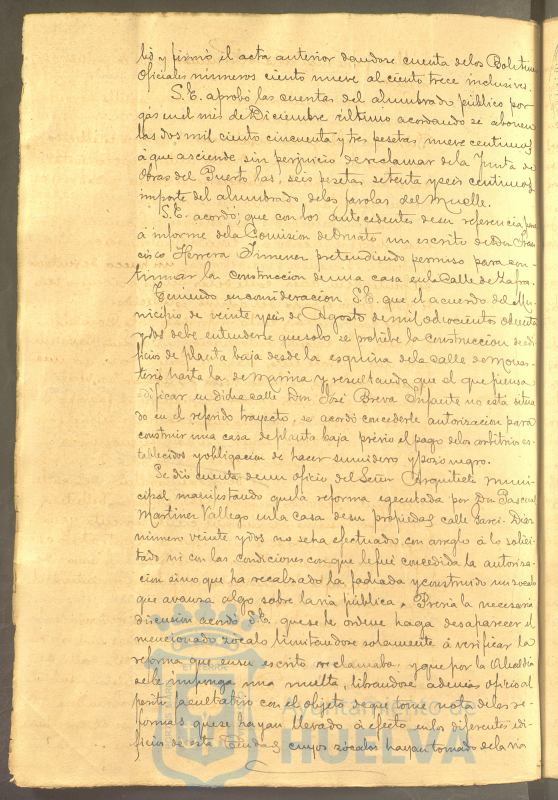 bó y firmó el acta anterior dandose cuenta de los Boletines
Oficiales números ciento nueve al ciento trece inclusives.
S.E. aprobó las cuentas del alumbrado público por
gas en el mes de Diciembre último acordando se abonen
las dos mil ciento cincuenta y tres pesetas nueve centimos
á que asciende sin perjuicio de reclamar de la Junta de
Obras del Puerto las seis pesetas setenta y seis centimos
importe del alumbrado de las farolas del Muelle.
S.E. acordó, que con los antecedentes de su referencia pase
á informe de la Comision de Ornato un escrito de Don Fran
cisco Herrera Jimenez pretendiendo permiso para con
tinuar la construccion de una casa en la Calle de Zafra.
Teniendo en consideracion S.E. que el acuerdo del Mu
nicipio de veinte y seis de Agosto de mil ochocientos ochenta
y dos debe entenderse que solo se prohibe la construccion de edi
ficios de planta baja desde la esquina de la calle de Monas
terio hasta la de Marina y resultando que el que piensa
edificar en dicha calle Don José Breva Infante no está situa
do en el referido trayecto, se acordó concederle autorizacion para
construir una casa de planta baja prévio el pago de los arbitrios es
tablecidos y obligacion de hacer sumidero y pozo negro.
Se dió cuenta de un oficio del Señor Arquitecto muni
cipal manifestando que la reforma egecutada por Don Pascual
Martinez Vallego en la casa de su propiedad calle Garci-Diaz
número veinte y dos no se ha efectuado con arreglo á lo solici
tado ni con las condiciones con que le fué concedida la autoriza
cion sino que ha recalzado la fachada y construido un zocalo
que avanza algo sobre la via pública. Prévia la necesaria
discusion acordó S.E. que se le ordene haga desaparecer el
mencionado zocalo limitandose solamente á verificar la
reforma que en su escrito reclamaba y que por la Alcaldia
se le imponga una multa, librandose además oficio al
perito facultativo con el objeto de que tome nota de las re
formas que se hayan llevado á efecto en los diferentes edi
ficios de esta Ciudad cuyos zócalos hayan tomado de la via
Ayuntamiento de
HUELVA